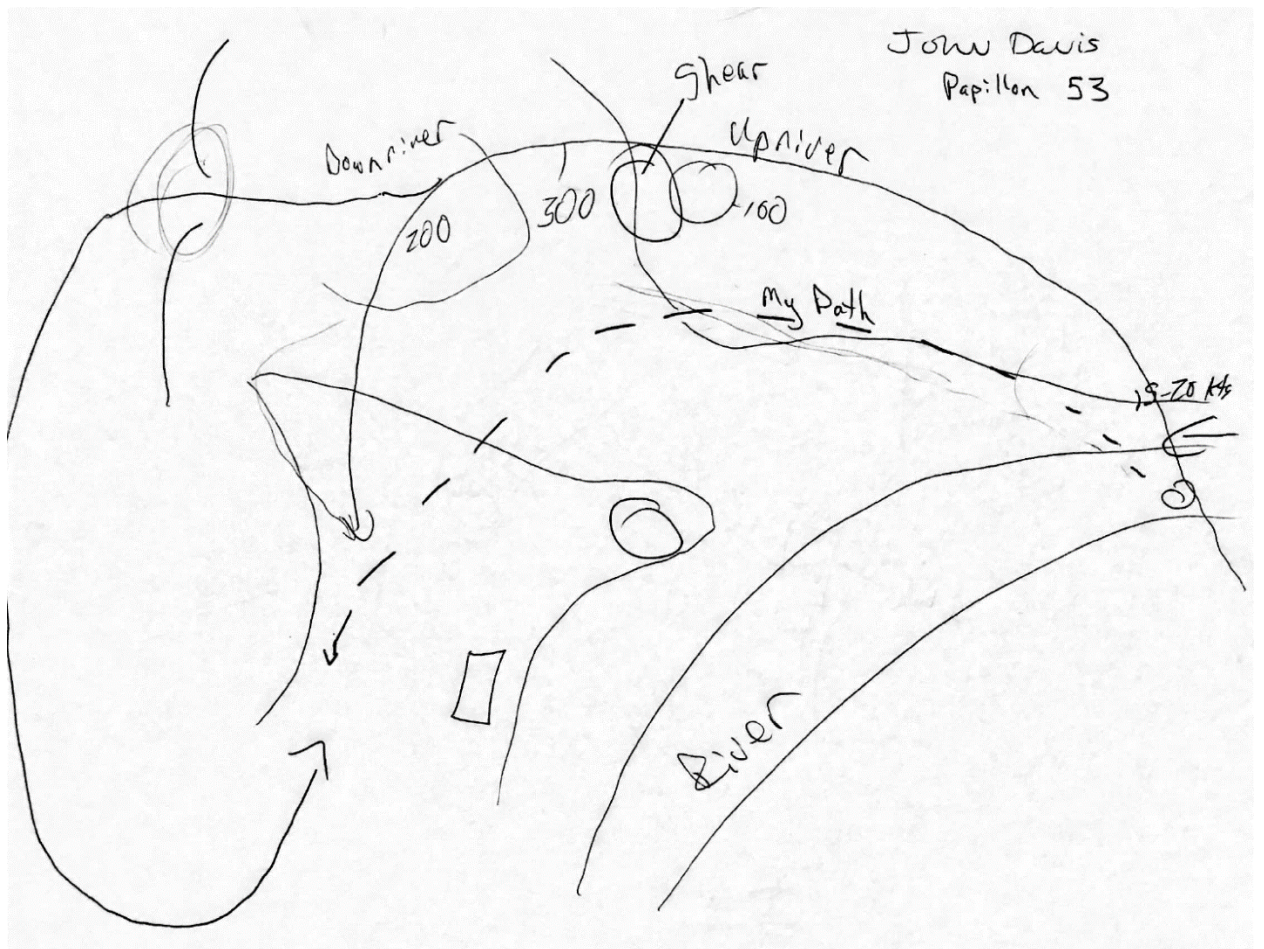 John Davis
Papillon 53
Shear
Upriver
Downriver
200
300
100
My Path
15-20 kts
River